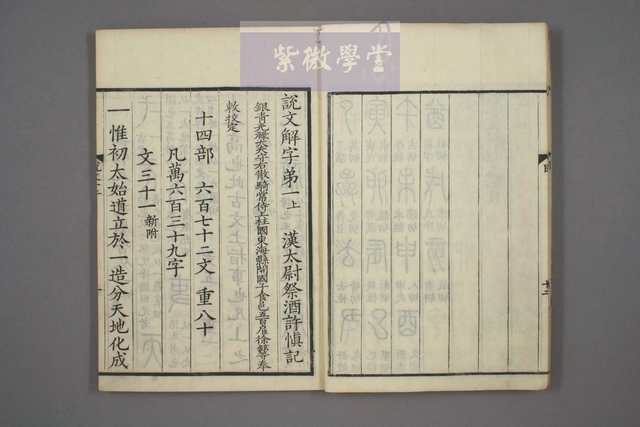 紫微學堂
說文解字弟一上 漢太尉祭酒許慎記
銀青光祿大夫守右散騎常侍上柱國東海縣開國子食邑五百戶徐鉉等奉
敕校定
十四部 六百七十二文 重八十
凡萬六百三十九字
文三十一新附
一 惟初太始道立於一造分天地化成